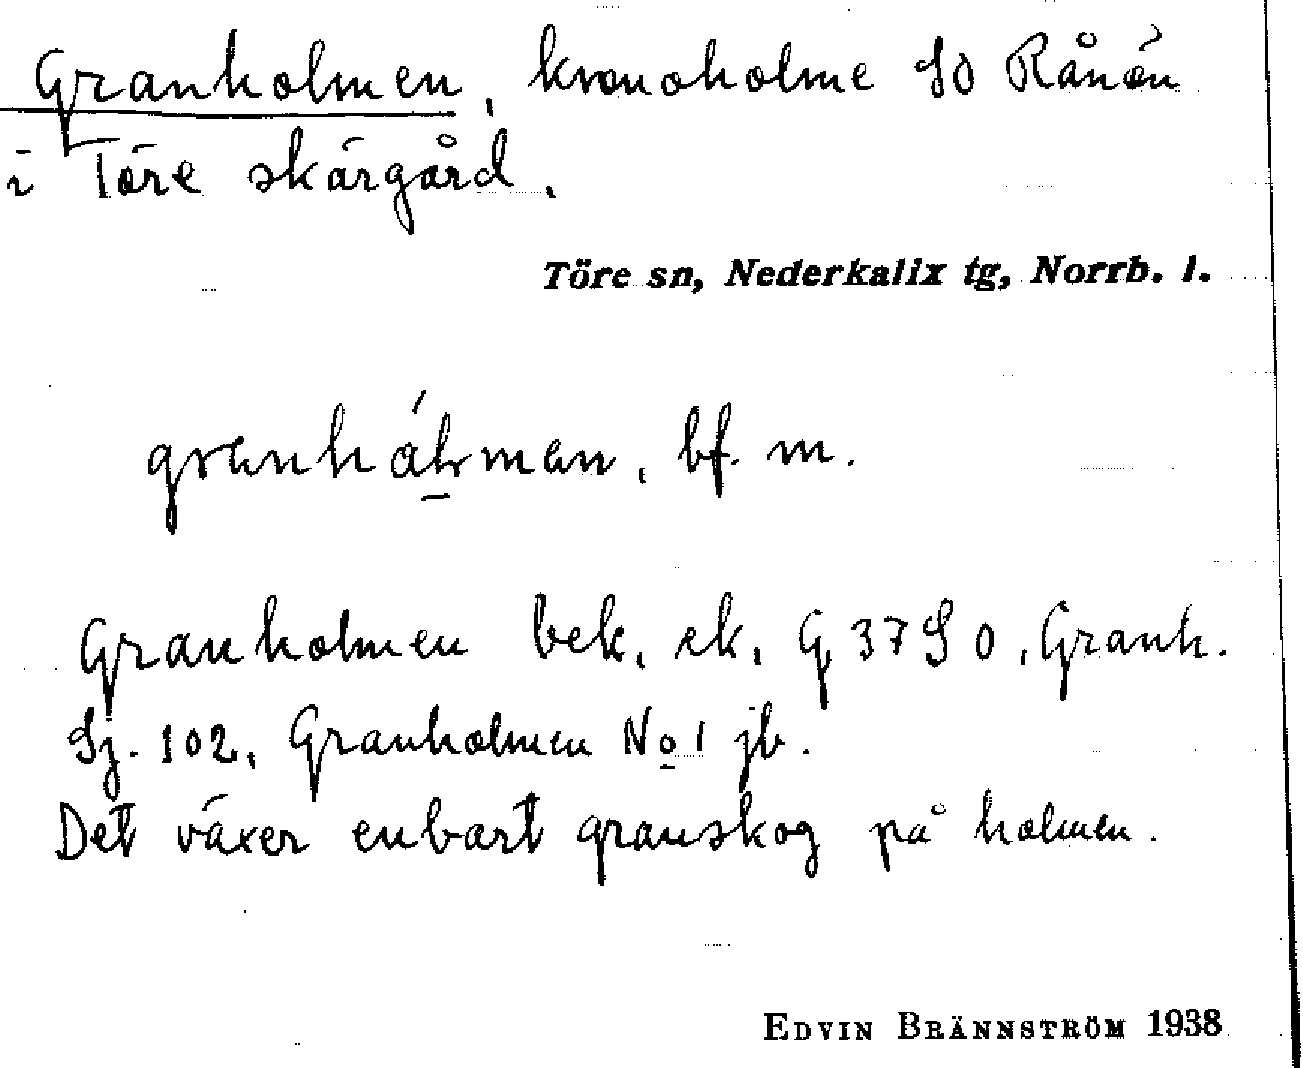 Granholmen, kronoholme SO Rånön
i Töre skärgård.
Töre sn, Nederkalix tg, Norrb. l.
bf. m.
Granholmen bek. ek., G 37 S O, Granh.
Sj. 102, Granholmen No 1 jb.
Det växer enbart granskog på holmen.
EDVIN BRÄNNSTRÖM 1938